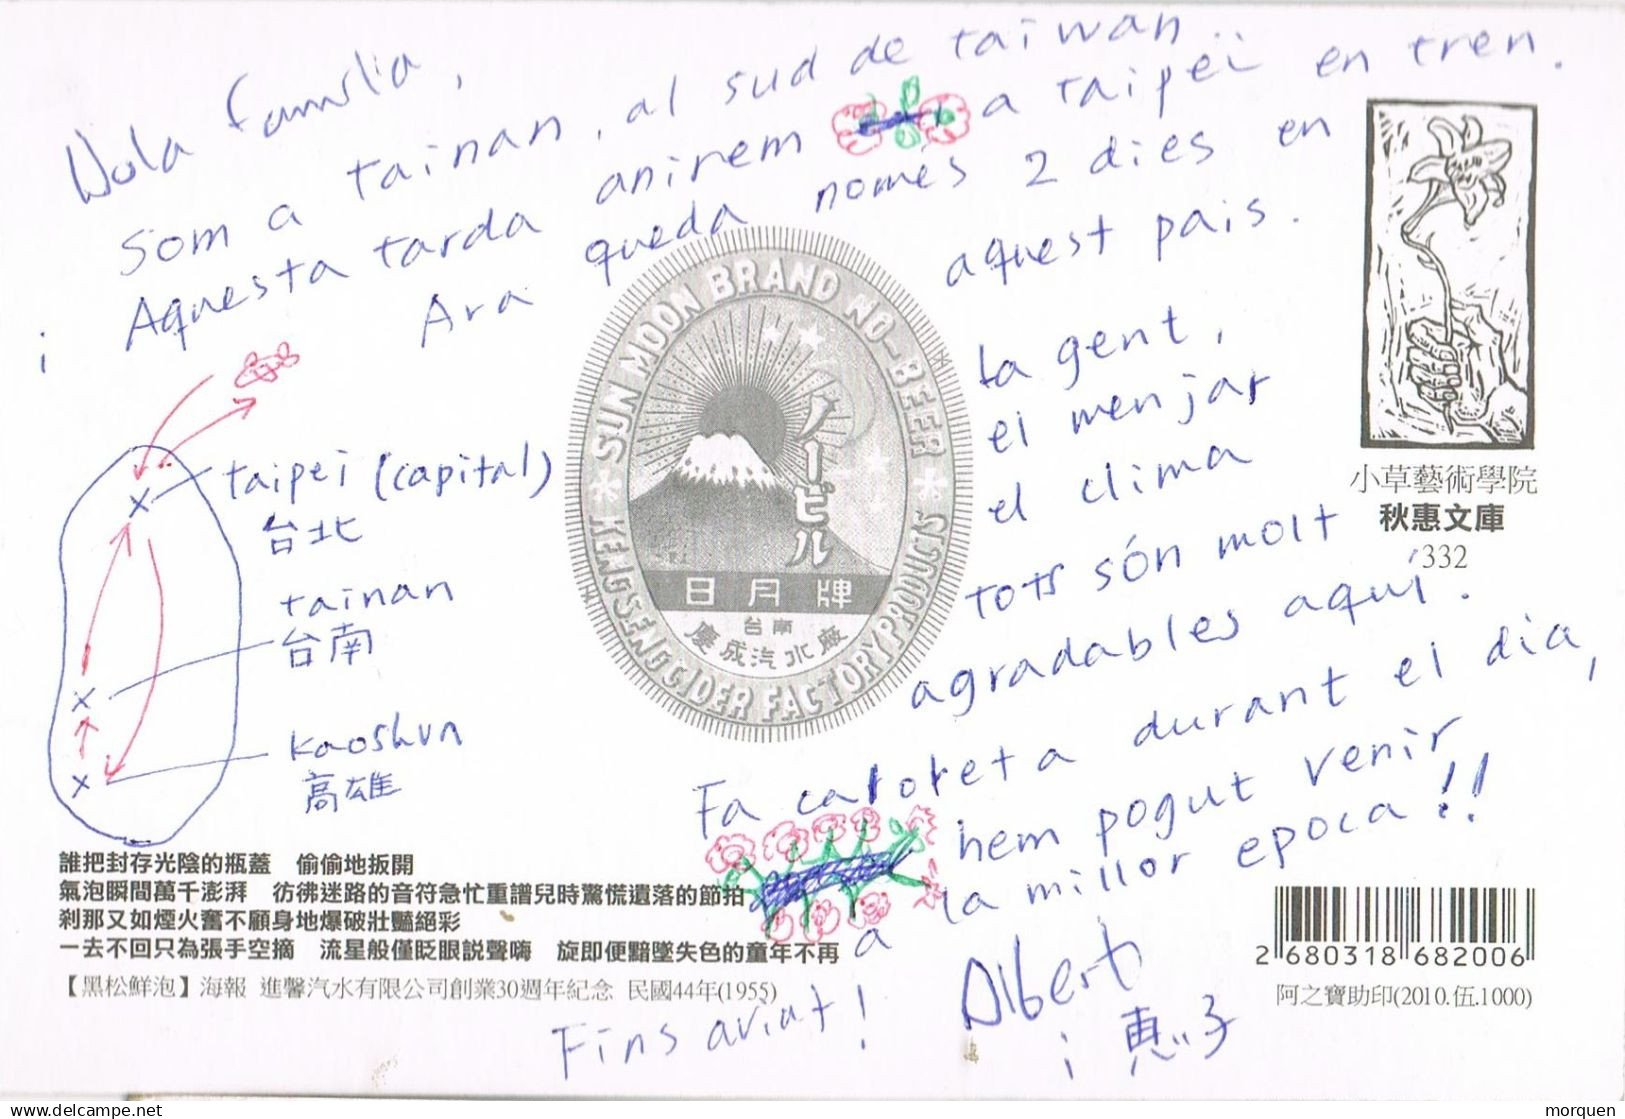 Hola família,
Som a tainan, al sud de taiwan.
i Aquesta tarda anirem a taipei en tren.
Ara queda només 2 dies en
aquest pais.
la gent,
el menjar
el clima
tots són molt
agradables aquí.
Fa caloreta durant el dia,
hem pogut venir
a la millor epoca!!
Fins aviat!
Albert
i 惠子
taipei (capital)
台北
tainan
台南
kaoshun
高雄
SUN MOON BRAND NO-BEER
KENG SENG CIDER FACTORY PRODUCTS
ノービル
日月牌
台南
慶成汽水廠
小草藝術學院
秋惠文庫
332
誰把封存光陰的瓶蓋 偷偷地扳開
氣泡瞬間萬千澎湃 彷彿迷路的音符急忙重譜兒時驚慌遺落的節拍
剎那又如煙火奮不顧身地爆破壯豔絕彩
一去不回只為張手空摘 流星般僅眨眼說聲嗨 旋即便黯墜失色的童年不再
【黑松鮮泡】海報 進馨汽水有限公司創業30週年紀念 民國44年(1955)
2 680318 682006
阿之寶助印(2010.伍.1000)
delcampe.net
morquen